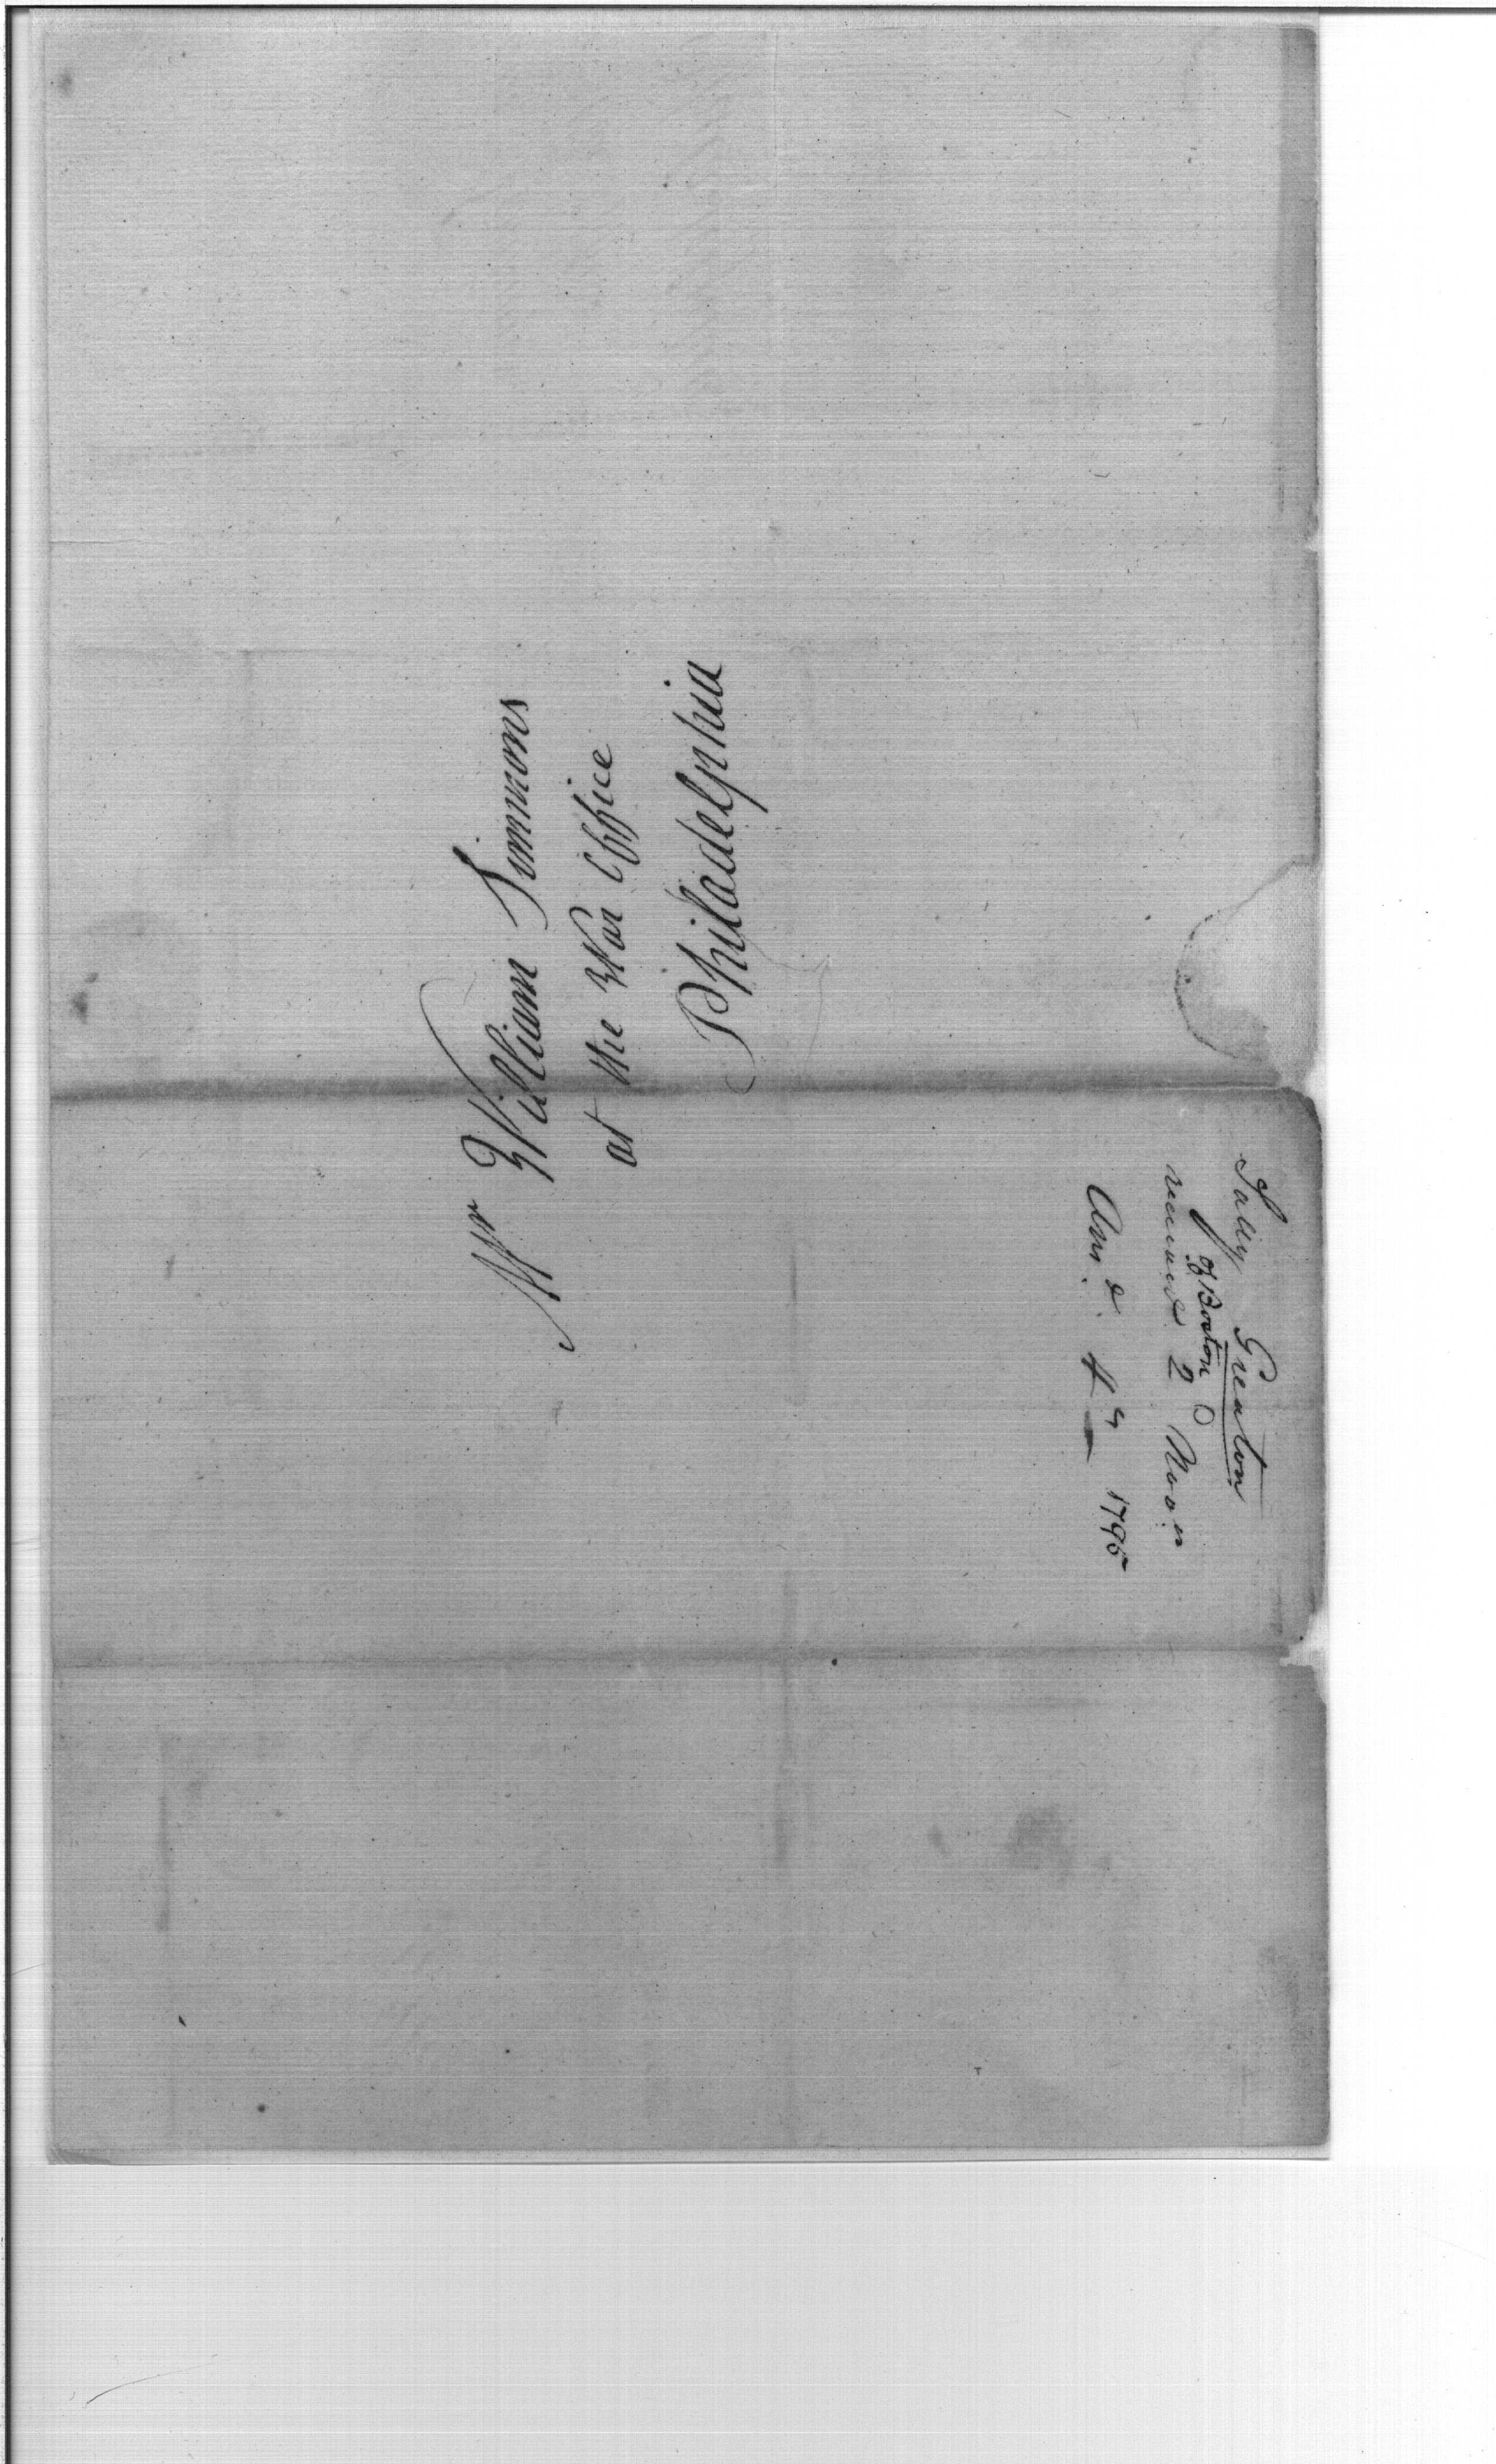 Mr William Simmons
at the War Office
Philadelphia
Sally Greaton
of Boston
received 2 Nov.
Ans.d 4 1795